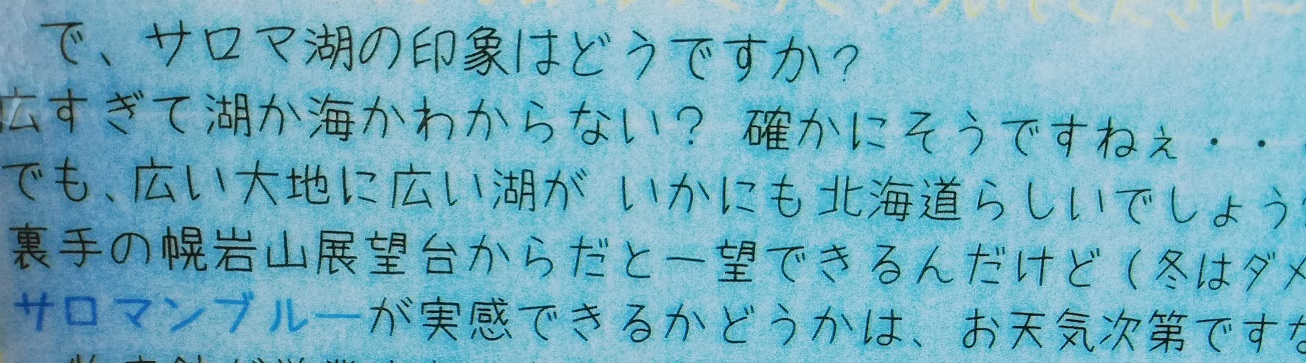 で、サロマ湖の印象はどうですか?
広すぎて湖か海かわからない? 確かにそうですねぇ・・・
でも、広い大地に広い湖が いかにも北海道らしいでしょう
裏手の幌岩山展望台からだと一望できるんだけど(冬はダメ
サロマンブルーが実感できるかどうかは、お天気次第ですな